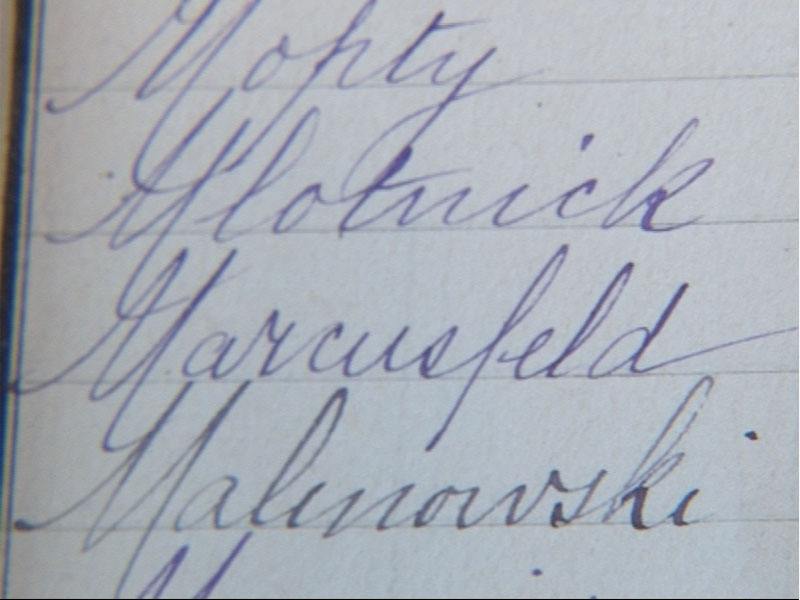 Mopty
Mlotnick
Marcusfeld
Malinowski